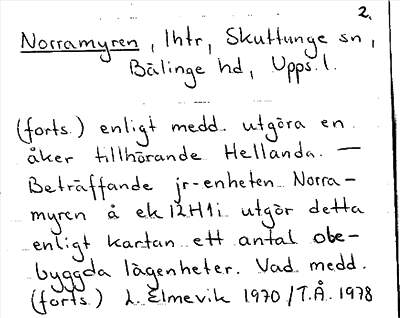 2.
Norramyren, lhtr, Skuttunge sn,
Bälinge hd, Upps. l.
(forts.) enligt medd. utgöra en
åker tillhörande Hellanda. —
Beträffande jr-enheten Norra-
myren å ek 12H1i utgör detta
enligt kartan ett antal obe-
byggda lägenheter. Vad medd.
(forts.) L. Elmevik 1970/T.Å. 1978